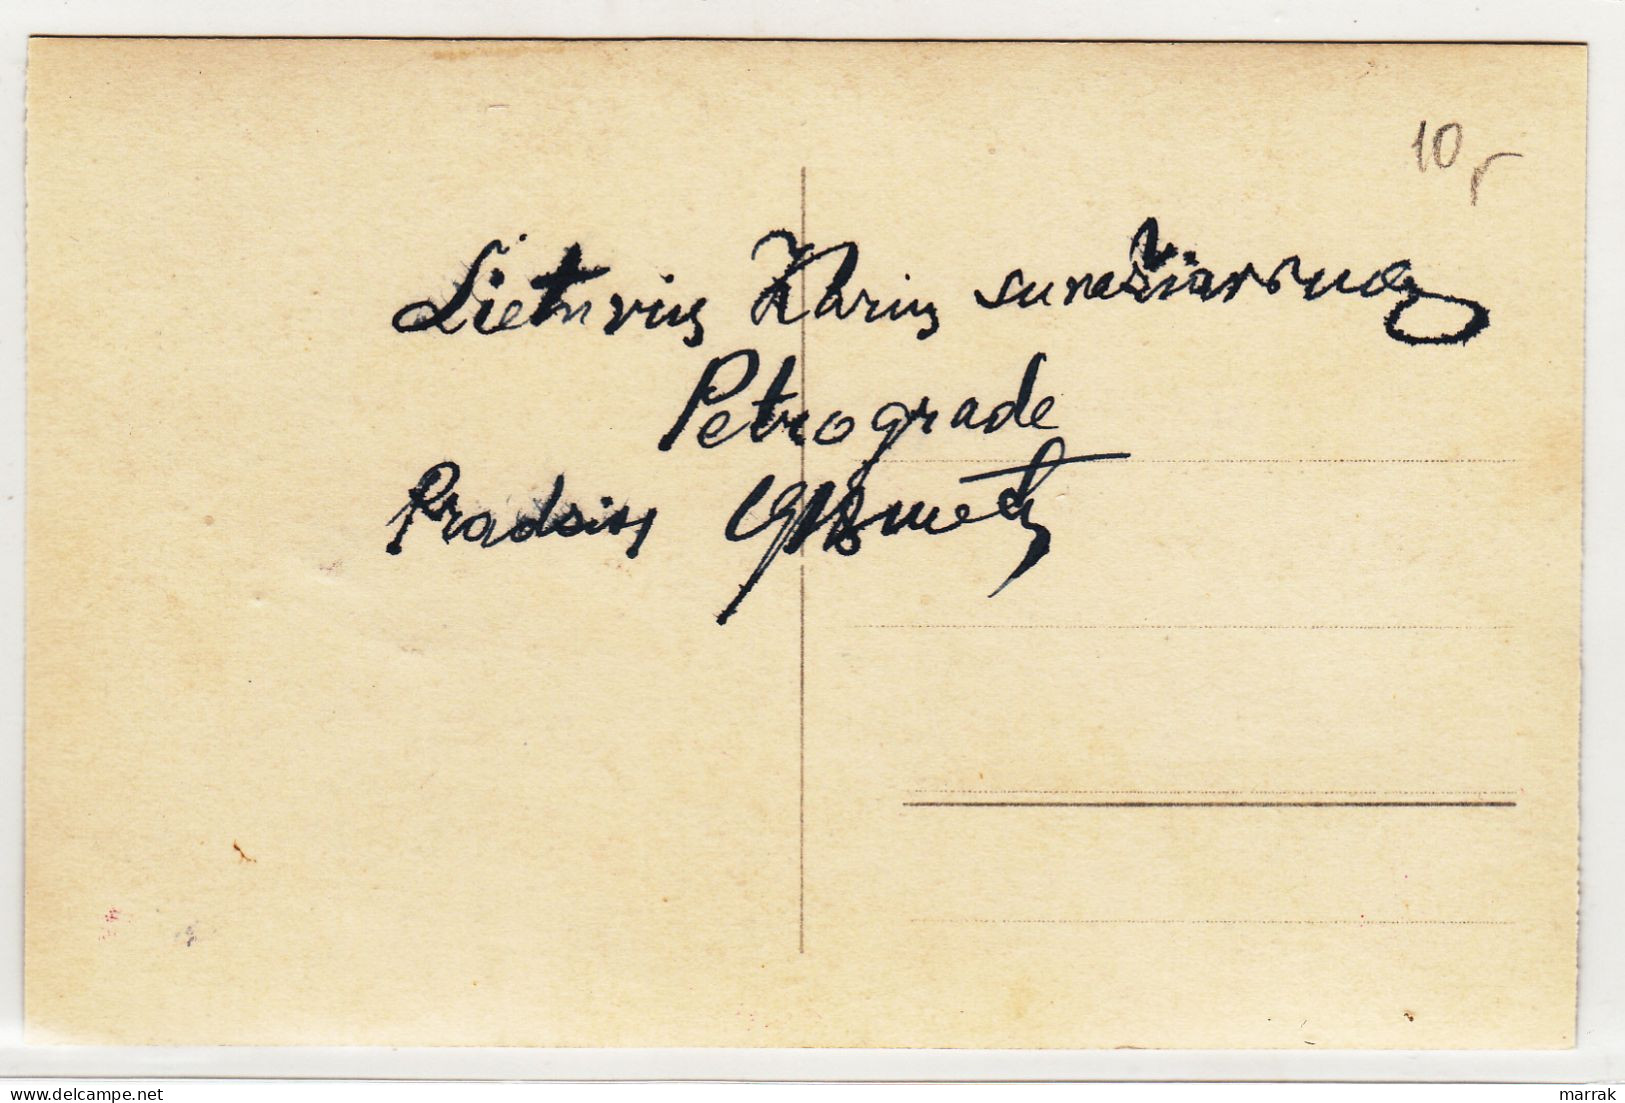 10 r
Lietuvių Karių suvažiavimas
Petrograde
Pradžios
delcampe.net
marrak